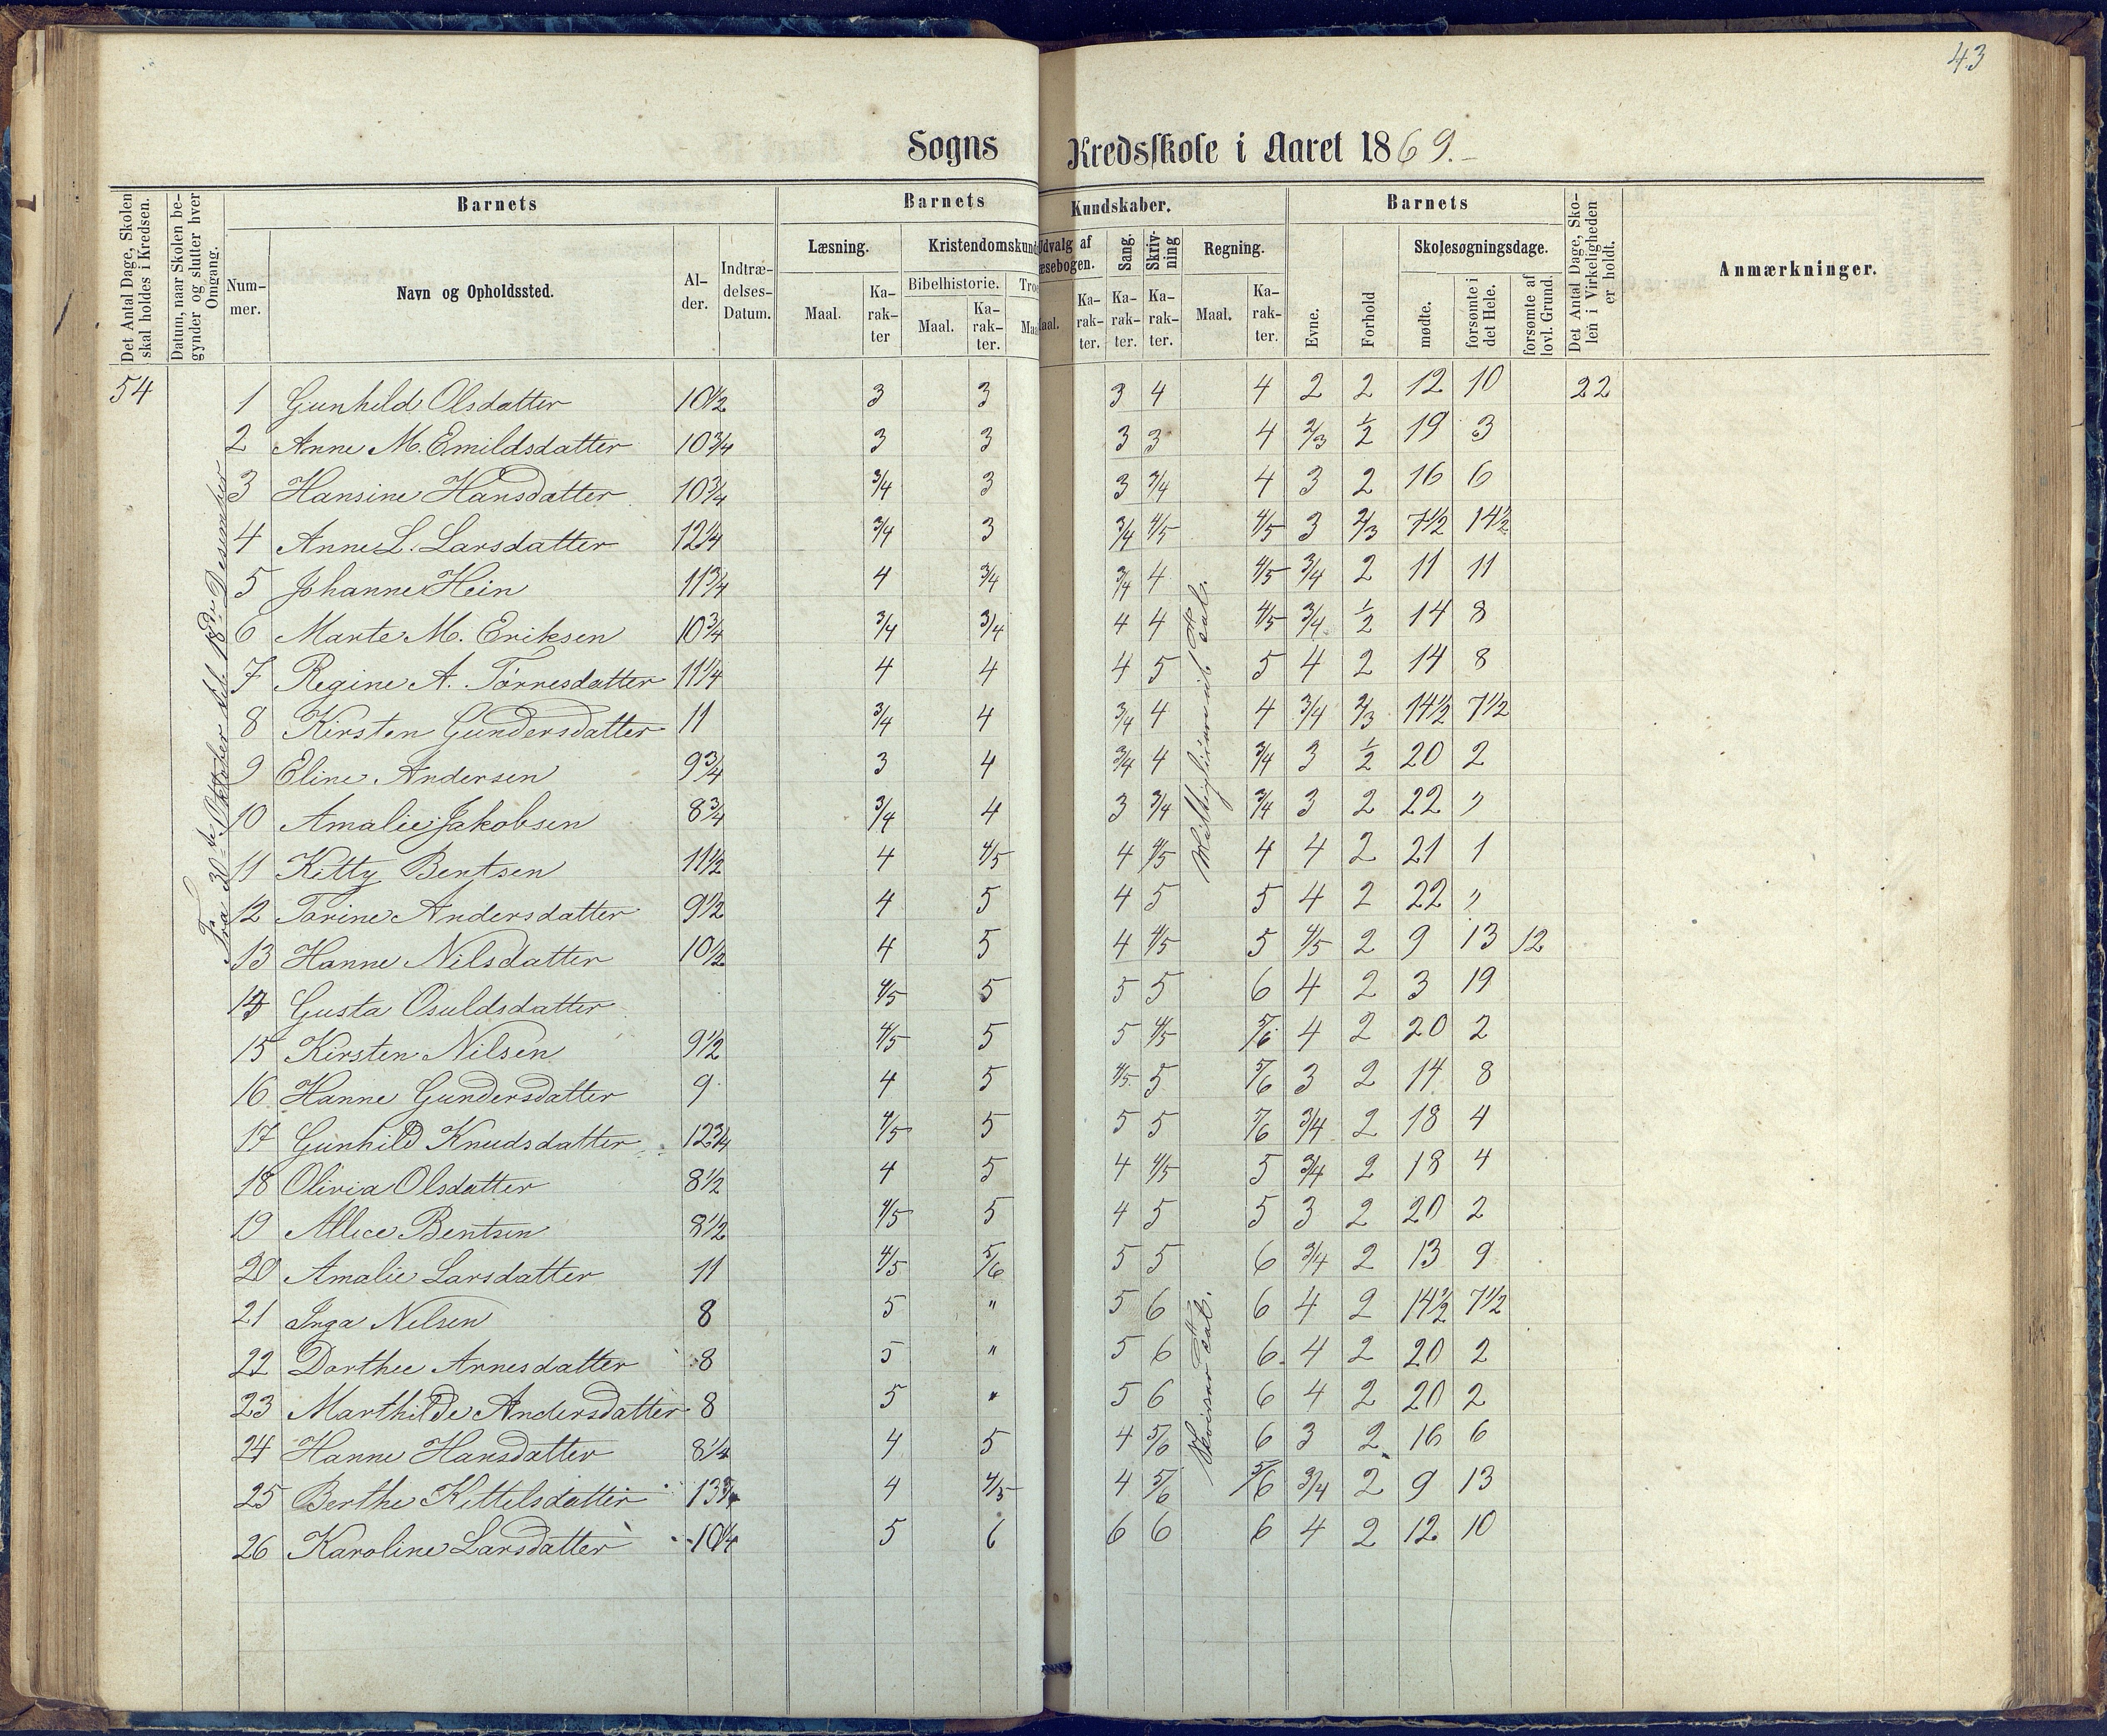 43
Sogns Kredsskole i Aaret 1869.
Det Antal Dage, Skolen skal holdes i Kredsen.
Datum, naar Skolen begynder og slutter hver Omgang.
Barnets
Barnets Kundskaber.
Barnets
Det Antal Dage, Skolen i Virkeligheden er holdt.
Anmærkninger.
Nummer.
Navn og Opholdssted.
Alder.
Indtrædelses-Datum.
Læsning.
Kristendomskund
Udvalg af
æsebogen.
Sang.
Skrivning
Regning.
Evne.
Forhold
Skolesøgningsdage.
Bibelhistorie.
Troe
Maal.
Karakter
Maal.
Karakter.
Maal.
Karakter.
Karakter.
Karakter.
Maal.
Karakter.
mødte.
forsømte i det Hele.
forsømte af lovl. Grund.
54
Fra 30te Oktober til 18de Desember
1 Gunhild Olsdatter 10½ 3 3 3 4 4 2 2 12 10 22
2 Anne M. Emildsdatter 10¾ 3 3 3 3 4 2/3 ½ 19 3
3 Hansine Hansdatter 10¾ 3/4 3 3 3/4 4 3 2 16 6
4 Anne L. Larsdatter 12¼ 3/4 3 3/4 4/5 4/5 3 2/3 7½ 14½
5 Johanne Hein 11¾ 4 3/4 3/4 4 4/5 3/4 2 11 11
6 Marte M. Eriksen 10¾ 3/4 3/4 4 4 4/5 3/4 ½ 14 8
7 Regine A. Tørresdatter 11¼ 4 4 4 5 5 4 2 14 8
8 Kirsten Gundersdatter 11 3/4 4 3/4 4 4 3/4 2/3 14½ 7½
9 Eline Andersen 9¾ 3 4 3/4 4 3/4 3 ½ 20 2
10 Amalie Jakobsen 8¾ 3/4 4 3 3/4 3/4 3 2 22 "
11 Kitty Bentsen 11½ 4 4/5 4 4/5 4 4 2 21 1
12 Torine Andersdatter 9½ 4 5 4 5 5 4 2 22 "
13 Hanne Nilsdatter 10½ 4 5 4 4/5 5 4/5 2 9 13 12
14 Gusta Osuldsdatter 4/5 5 5 5 6 4 2 3 19
15 Kirsten Nilsen 9½ 4/5 5 5 4/5 5/6 4 2 20 2
16 Hanne Gundersdatter 9 4 5 4/5 5 5/6 3 2 14 8
17 Gunhild Knudsdatter 12¾ 4/5 5 5 5 5/6 3/4 2 18 4
18 Olivia Olsdatter 8½ 4 5 4 4/5 5 3/4 2 18 4
19 Allice Bentsen 8½ 4/5 5 4 5 5 3 2 20 2
20 Amalie Larsdatter 11 4/5 5/6 5 5 6 3/4 2 13 9
21 Inga Nilsen 8 5 " 5 6 6 4 2 14½ 7½
22 Dorthee Arnesdatter 8 5 " 5 6 6 4 2 20 2
23 Marthilde Andersdatter 8 5 " 5 6 6 4 2 20 2
24 Hanne Hansdatter 8¼ 4 5 4 5/6 6 3 2 16 6
25 Berthe Kittelsdatter 13¾ 4 4/5 4 5/6 5/6 3/4 2 9 13
26 Karoline Larsdatter 10¼ 5 6 6 6 6 4 2 12 10